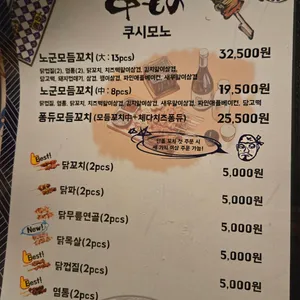 쿠시모노
노군모듬꼬치 (大 : 13pcs) 32,500원
닭껍질(2), 염통(2), 닭꼬치, 치즈떡말이삼겹, 김치말이삼겹,
노군모듬꼬치 (中 : 8pcs) 19,500원
닭껍질, 염통, 닭꼬치, 치즈떡말이삼겹, 김치말이삼겹, 새우말이삼겹, 파인애플베이컨, 닭고떡
퐁듀모듬꼬치 (모듬꼬치中+체다치즈퐁듀) 25,500원
단품 꼬치 첫 주문 시
세 가지 이상 주문 가능!
Best! 닭꼬치(2pcs) 5,000원
닭파(2pcs) 5,000원
닭무릎연골(2pcs) 5,000원
New! 닭목살(2pcs) 5,000원
Best! 닭껍질(2pcs) 5,000원
염통(2pcs) 5,000원